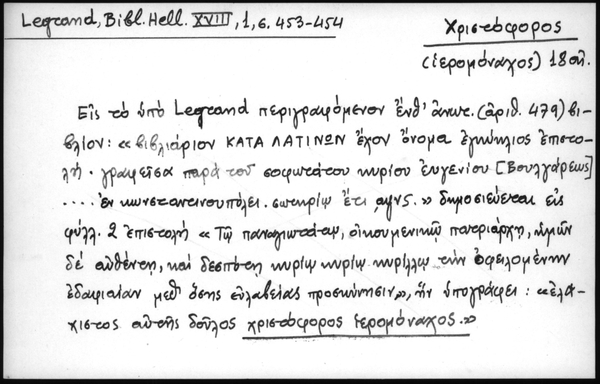 Legrand, Bibl. Hell. XVIII, 1, σ. 453-454
Χριστόφορος
(ἱερομόναχος) 18 αἰ.
Εἰς τὸ ὑπὸ Legrand περιγραφόμενον ἔνθ' ἀνωτ. (ἀριθ. 479) βι-
βλίον: «βιβλιάριον ΚΑΤΑ ΛΑΤΙΝΩΝ ἔχον ὄνομα ἐγκύκλιος ἐπιστο-
λή · γραφεῖσα παρὰ τοῦ σοφωτάτου κυρίου εὐγενίου [Βουλγάρεως]
.... ἐν κωνσταντινουπόλει. σωτηρίῳ ἔτει ͵αψνς.» δημοσιεύεται εἰς
φύλλ. 2 ἐπιστολὴ «Τῷ παναγιωτάτῳ, οἰκουμενικῷ πατριάρχῃ, ἡμῶν
δὲ αὐθέντῃ, καὶ δεσπότῃ κυρίῳ κυρίῳ κυρίλλῳ τὴν ὀφειλομένην
ἐδαφιαίαν μεθ' ὅσης εὐλαβείας προσκύνησιν», ἣν ὑπογράφει: «ἐλά-
χιστος αὐτῆς δοῦλος χριστόφορος ἱερομόναχος.»